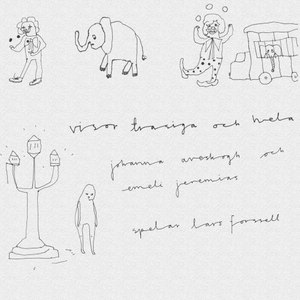 visor trasiga och hela
johanna aveskogh och
emeli jeremias
spelar lars forssell